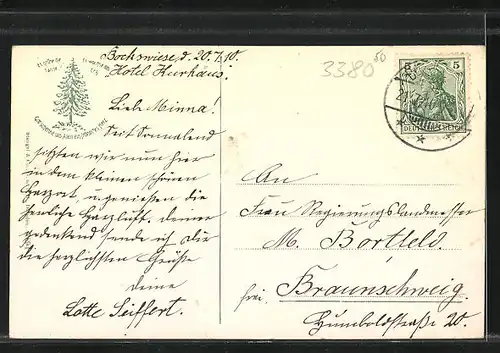 Bockswiese, d. 20.7.10.
Hotel Kurhaus.
Liebe Minna!
Seit Sonnabend
sitzen wir nun hier
in dem kleinen schönen
Harzort u. genießen die
herrliche Harzluft. Deiner
gedenkend sende ich Dir
die herzlichsten Grüße
Deine
Lotte Seiffert.
3380
50
5 5
DEUTSCHES REICH
An
Frau Regierungslandmesser
M. Bortfeld.
frei. Braunschweig.
Humboldtstraße 20.